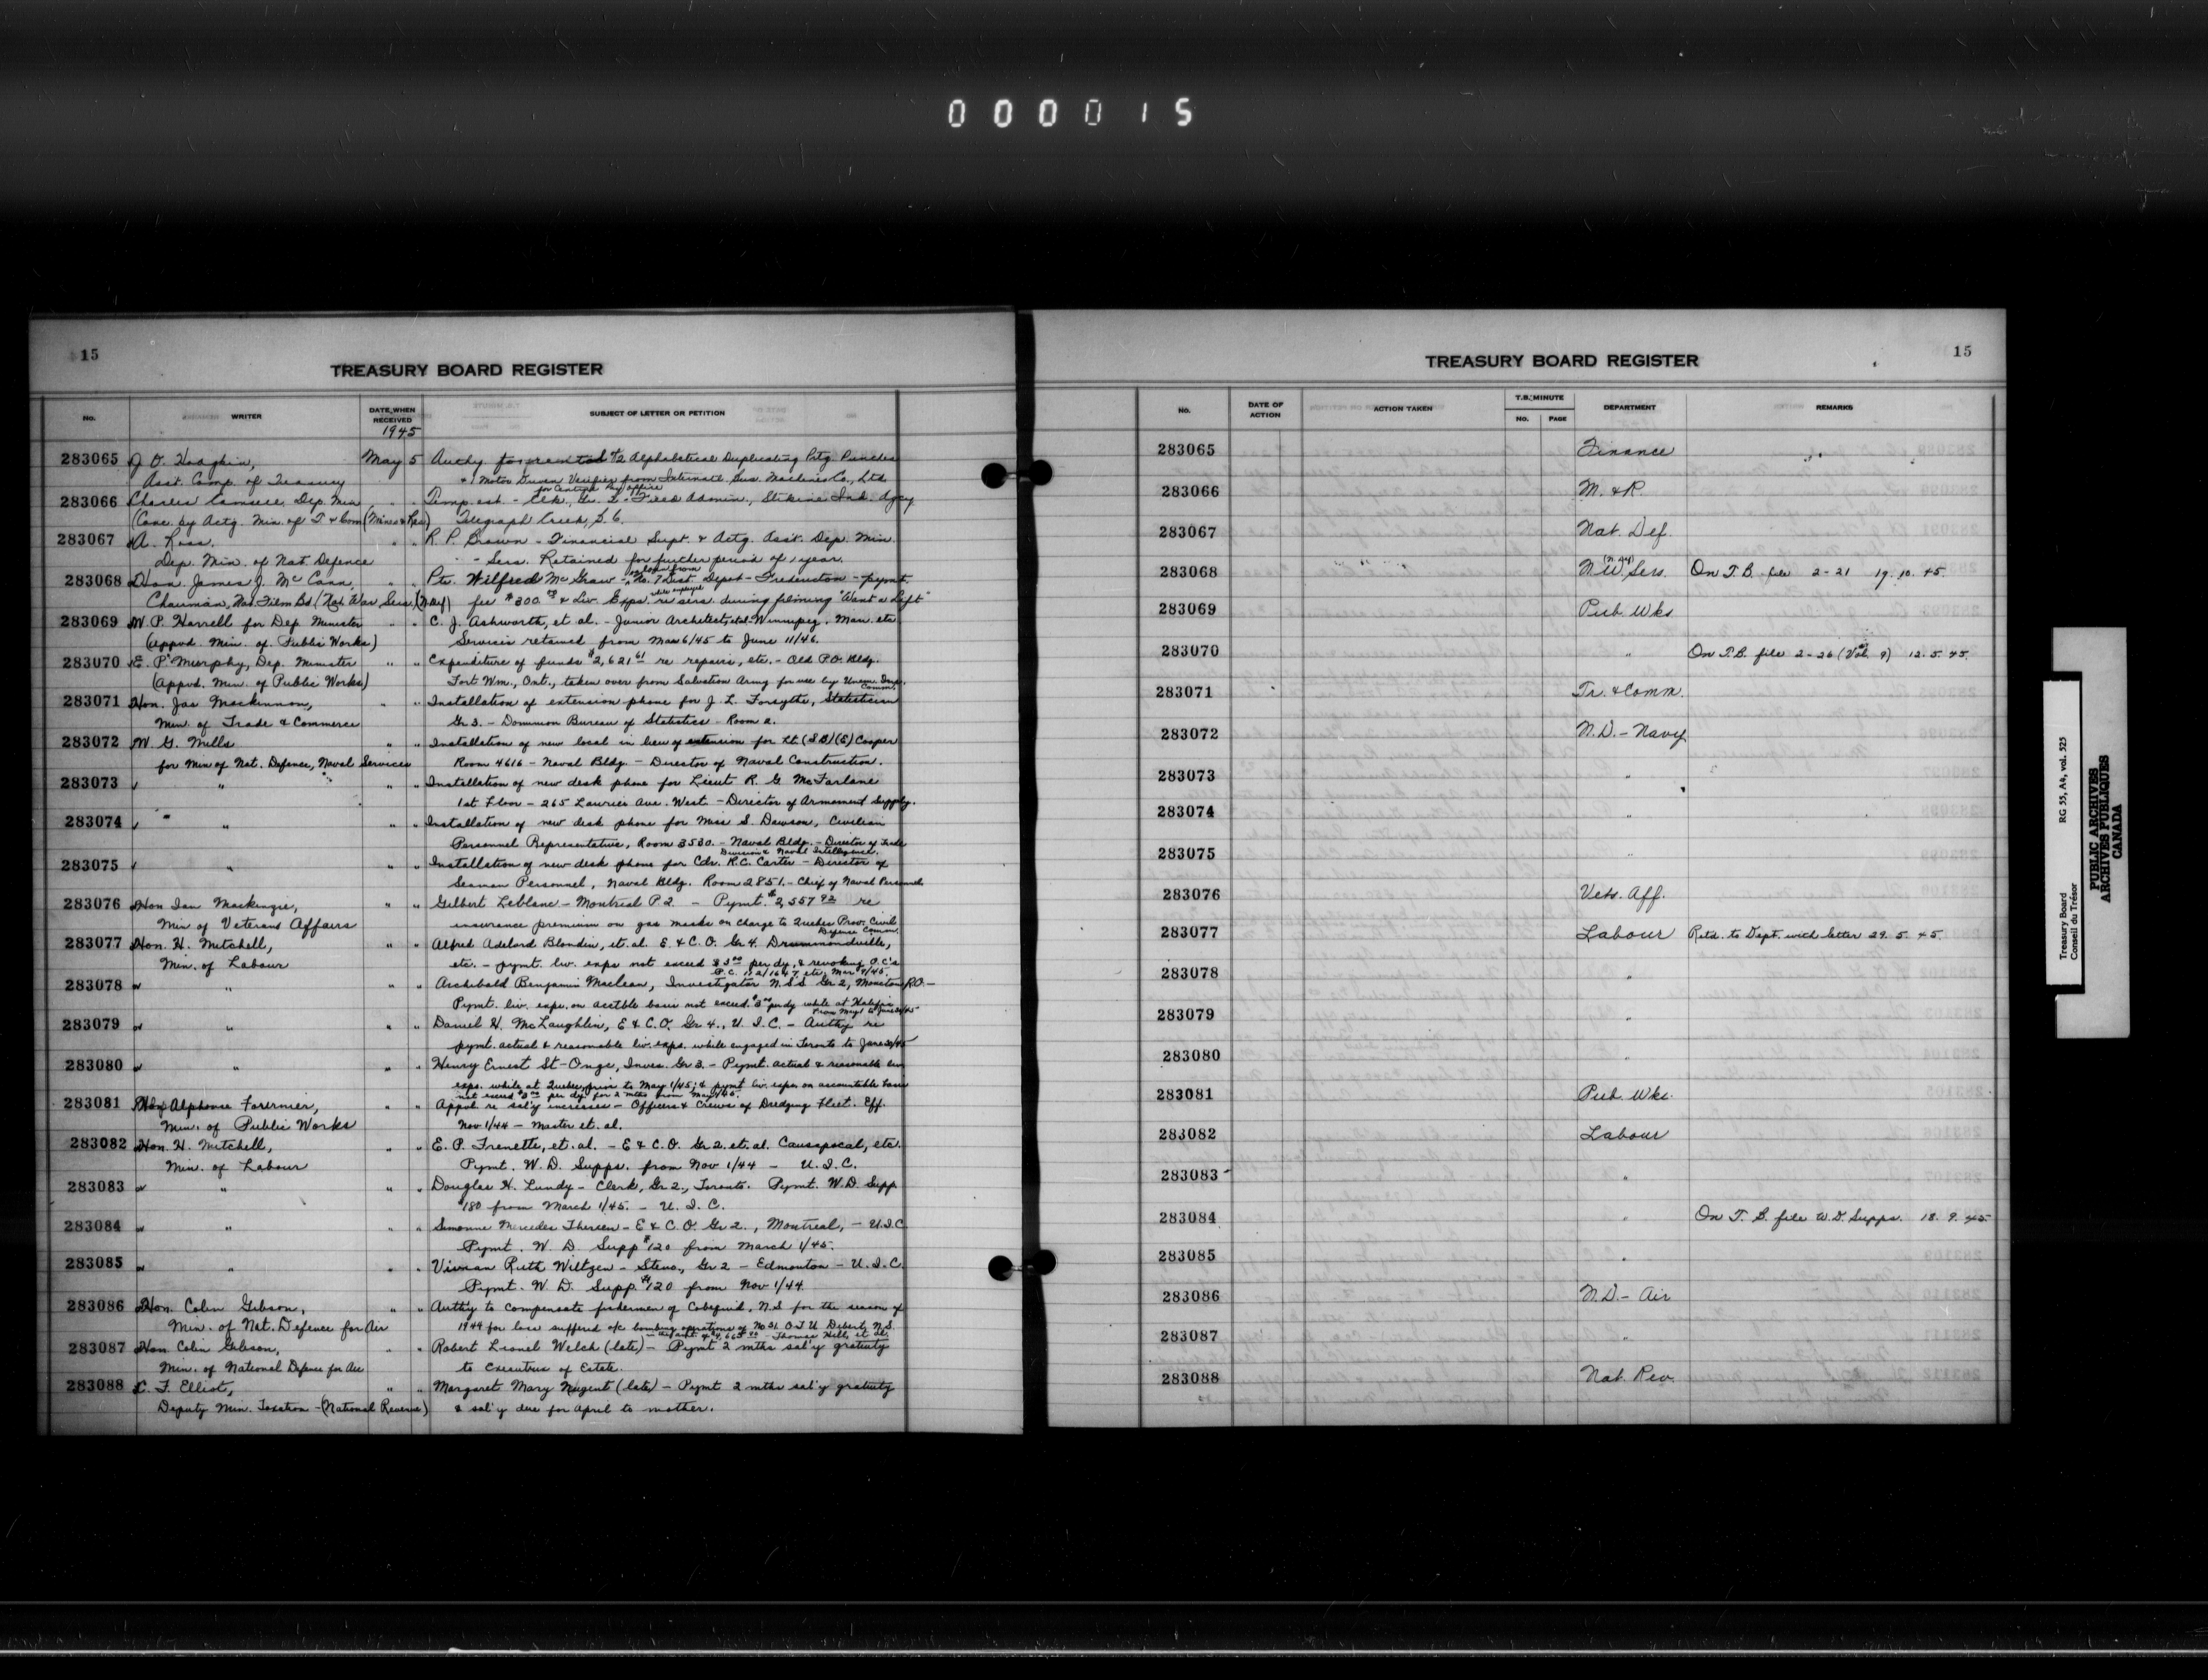 000015
15
TREASURY BOARD REGISTER
No.
WRITER
DATE WHEN RECEIVED
1945
SUBJECT OF LETTER OR PETITION
283065 J. O. Hodgkin, May 5 Authy for rental #2 Alphabetical Duplicating Prtg. Punches
Asst. Comp. of Treasury & 1 Motor Driven Verifier from Internatl. Bus. Machines Co., Ltd.
for Central Pay Office
283066 Charles Camsell, Dep. Min " " Temp. est - Clk., Gr. 2 - Field Admin., Stikine Ind. Agcy
(Conc. by Actg. Min. of T. & Com) (Mines & Res) Telegraph Creek, B.C.
283067 A. Ross, " " R. P. Brown - Financial Supt. & Actg. Asst. Dep. Min.
Dep. Min. of Nat. Defence - Sess. Retained for further period of 1 year.
283068 Hon. James J. McCann, " " Pte. Wilfred McGraw - on loan from No. 7 Dist. Depot - Fredericton - pymt.
Chairman, Nat. Film Bd (Nat. War Sers.) (N. Def) fee $300.00 & Liv. Exps. while employed re sers. during filming "Want a Lift"
283069 W. P. Harrell for Dep. Minister " " C. J. Ashworth, et al. - Junior Architect, etal Winnipeg, Man. etc
(appvd. Min. of Public Works) Services retained from Mar 6/45 to June 11/46.
283070 E. P. Murphy, Dep. Minister " " Expenditure of funds $2,621 61 re repairs, etc. - Old P.O. Bldg.
(Appvd. Min. of Public Works) Fort Wm., Ont., taken over from Salvation Army for use by Unem. Ins. Comm.
283071 Hon. Jas MacKinnon, " " Installation of extension phone for J. L. Forsythe, Statistician
Min. of Trade & Commerce Gr 3. - Dominion Bureau of Statistics - Room a.
283072 W. G. Mills " " Installation of new local in lieu of extension for Lt (SB) (E) Cooper
for Min of Nat. Defence, Naval Services Room 4616 - Naval Bldg. - Director of Naval Construction.
283073 " " " Installation of new desk phone for Lieut R. G. McFarlane
1st Floor - 265 Laurier Ave. West. - Director of Armament Supply.
283074 " " " " Installation of new desk phone for Miss S. Dawson, Civilian
Personnel Representative, Room 3530. - Naval Bldg. - Director of Trade
Division & Naval Intelligence.
283075 " " " Installation of new desk phone for Cdr. R.C. Carter - Director of
Seaman Personnel, Naval Bldg. Room 2851. - Chief of Naval Personnel
283076 Hon Ian Mackenzie, " " Gilbert Leblanc - Montreal P.2. - Pymt. $2,557 92 re
Min of Veterans Affairs insurance premium on gas masks on Charge to Quebec Prov. Civil
Defence Comm.
283077 Hon. H. Mitchell, " " Alfred Adelard Blondin, et. al. E. & C. O. Gr 4. Drummondville,
Min. of Labour etc. - pymt. liv. exps not exceed $3 00 per dy, & revoking O.C's
P.C. 152/1647, etc, Mar 9/45.
283078 " " " Archibald Benjamin Maclean, Investigator N.S.S. Gr 2, Moncton R.O. -
Pymt. liv. exps. on acctble basis not exceed. $3 00 per dy while at Halifax
from May 1 to June 30/45
283079 " " " Daniel H. McLaughlin, E & C.O. Gr 4., U.I.C. - Authy re
pymt. actual & reasonable liv. exps. while engaged in Toronto to June 30/45
283080 " " " Henry Ernest St-Onge, Inves. Gr 3. - Pymt. actual & reasonable liv
exps. while at Quebec prior to May 1/45; & pymt liv. exps on accountable basis
not exceed $3 00 per dy for 2 mths from May 1/45.
283081 Hon Alphonse Fournier, " " Appvl. re sal'y increases - Officers & Crews of Dredging Fleet. Eff.
Min. of Public Works Nov. 1/44 - Master et. al.
283082 Hon. H. Mitchell, " " E. P. Frenette, et. al. - E & C. O. Gr 2. et. al. Causapscal, etc.
Min. of Labour Pymt. W. D. Supps. from Nov 1/44 - U.I.C.
283083 " " " Douglas H. Lundy - Clerk, Gr 2., Toronto. Pymt. W.D. Supp
$180 from March 1/45. - U.I.C.
283084 " " " Simonne Mercedes Therien - E & C. O. Gr 2., Montreal, - U.I.C
Pymt. W. D. Supp $120 from March 1/45.
283085 " " " Vivian Ruth Wiltzen - Steno., Gr 2 - Edmonton - U.I.C.
Pymt. W. D. Supp. $120 from Nov 1/44
283086 Hon. Colin Gibson, " " Authy to compensate fishermen of Cobequid, N.S. for the season of
Min. of Nat. Defence for Air 1944 for loss suffered o/c bombing operations of No 31 O.T.U. Debert, N.S.
in the amt of $4,665 00 - Thomas Hill, et al.
283087 Hon. Colin Gibson, " " Robert Lionel Welch (late) - Pymt 2 mths sal'y gratuity
Min. of National Defence for Air to Executrix of Estate.
283088 C. F. Elliot, " " Margaret Mary Nugent (late) - Pymt 2 mths sal'y gratuity
Deputy Min. Taxation - (National Revenue) & sal'y due for April to mother.
15
TREASURY BOARD REGISTER
No.
DATE OF ACTION
ACTION TAKEN
T.B. MINUTE
No. PAGE
DEPARTMENT
REMARKS
283065 Finance
283066 M. & R.
283067 Nat. Def.
283068 N.W. Sers. (N. Def) On T.B. file 2-21 19.10.45.
283069 Pub. Wks
283070 " On T.B. file 2-26 (Vol. 9) 12.5.45.
283071 Tr. & Comm.
283072 N.D. - Navy
283073 "
283074 "
283075 "
283076 Vets. Aff.
283077 Labour Retd. to Dept. with letter 29.5.45.
283078 "
283079 "
283080 "
283081 Pub. Wks.
283082 Labour
283083 "
283084 " On T. B. file W.D. Supps. 18.9.45
283085 "
283086 N.D. - Air
283087 "
283088 Nat. Rev.
Treasury Board RG 55, A4, vol. 525
Conseil du Trésor
PUBLIC ARCHIVES
ARCHIVES PUBLIQUES
CANADA